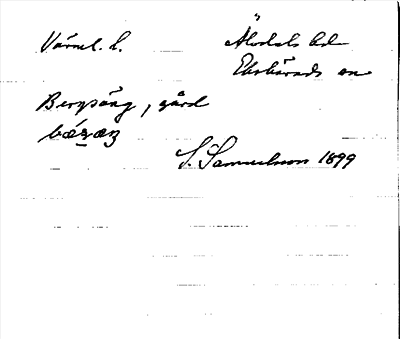 Värml. l.
Älvdals hd
Ekshärads sn
Bergsäng, gård
S. Samuelsson 1899